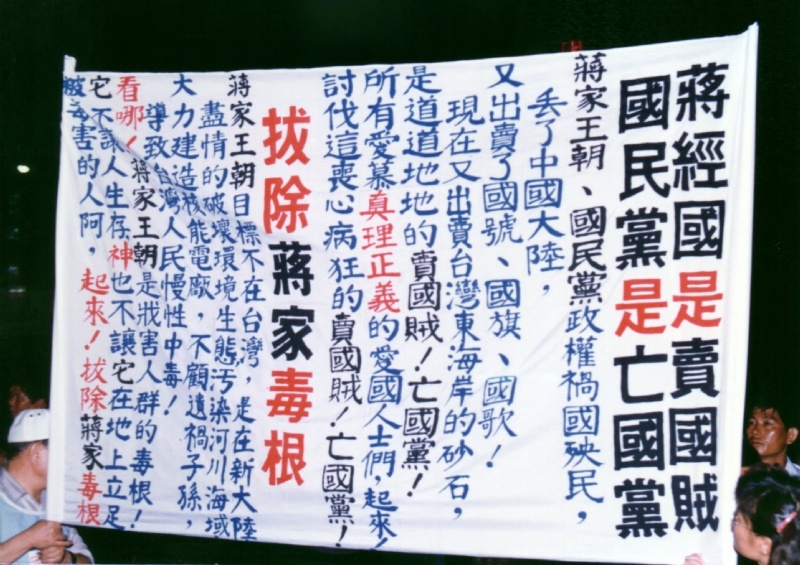 蔣經國是賣國賊
國民黨是亡國黨
蔣家王朝、國民黨政權禍國殃民，
丟了中國大陸，
又出賣了國號、國旗、國歌！
現在又出賣台灣東海岸的砂石，
是道道地地的賣國賊！亡國黨！
所有愛慕真理正義的愛國人士們，起來！
討伐這喪心病狂的賣國賊！亡國黨！
拔除蔣家毒根
蔣家王朝目標不在台灣，是在新大陸
盡情的破壞環境生態污染河川海域
大力建造核能電廠，不顧遺禍子孫，
導致台灣人民慢性中毒！
看哪！蔣家王朝是戕害人群的毒根！
它不讓人生存神也不讓它在地上立足
被毒害的人阿，起來！拔除蔣家毒根